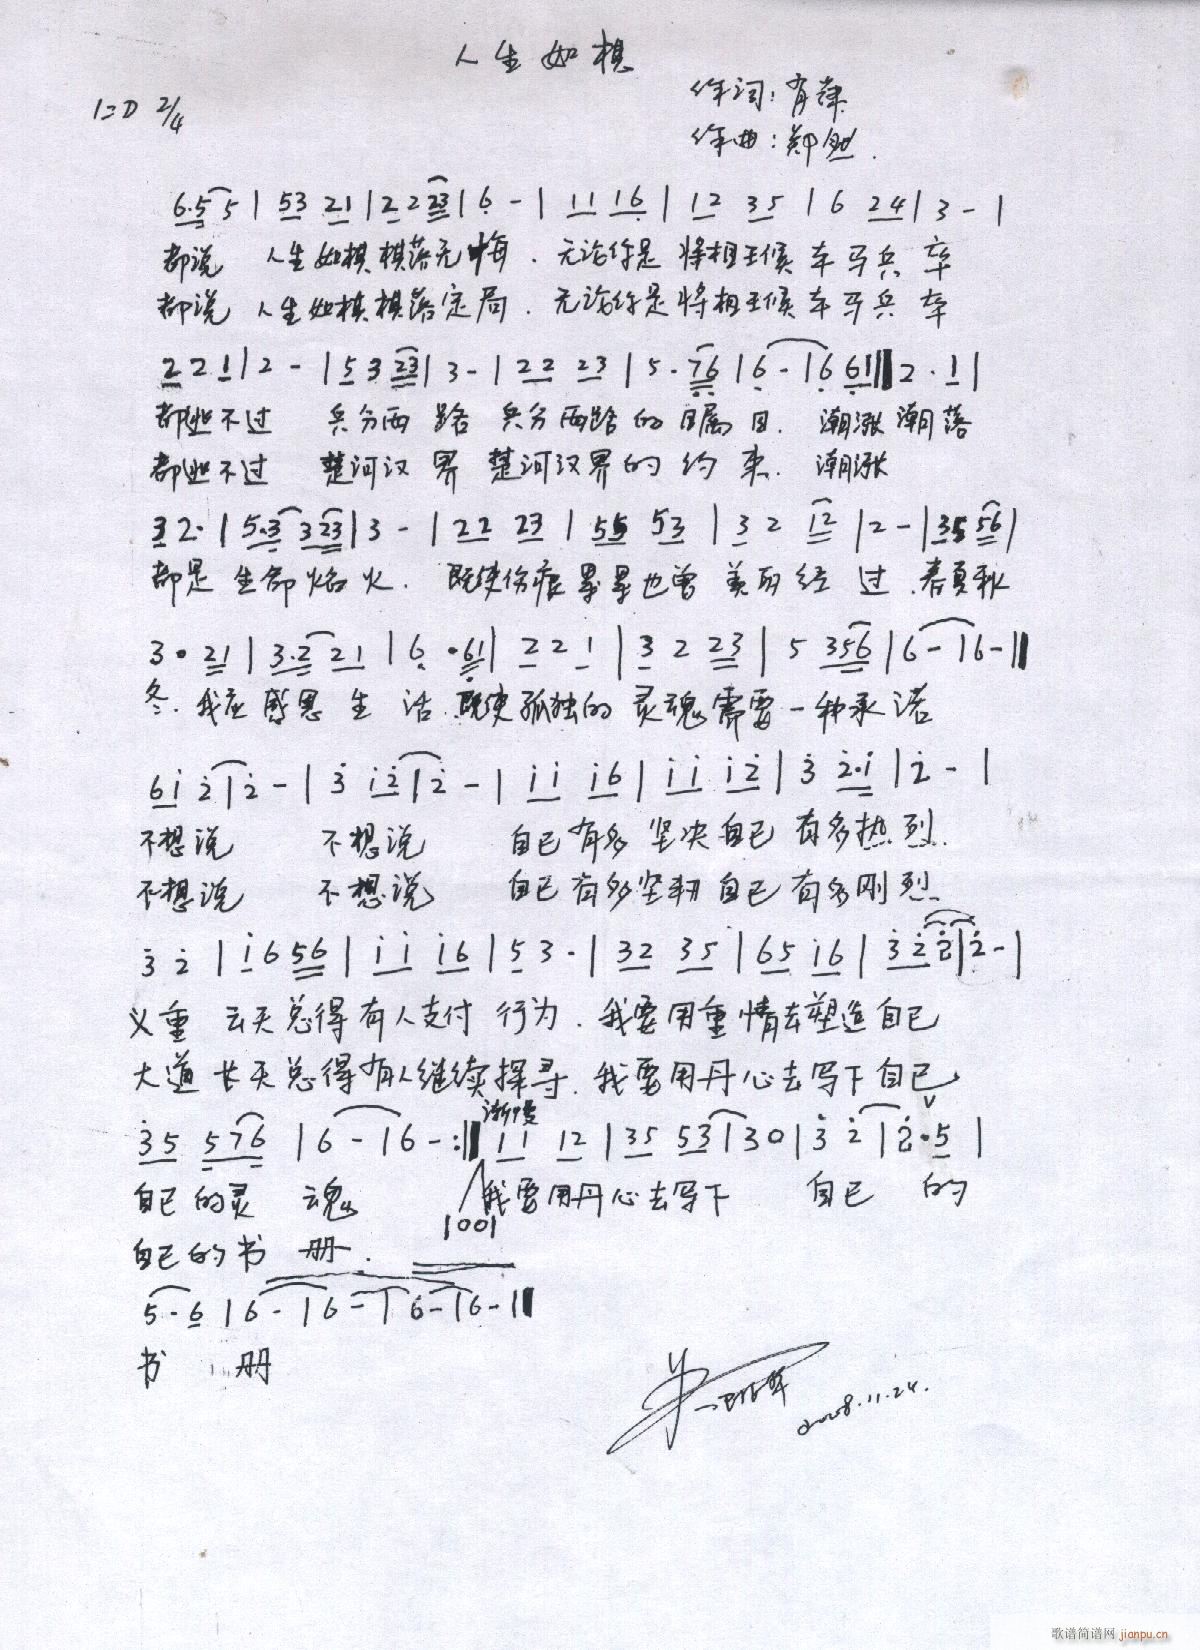 人生如棋
1=D 2/4
作词:肖萍
作曲:郑
6.5 5 | 53 21 | 2 2 23 | 6 - | 11 16 | 12 35 | 6 24 | 3 - |
都说 人生如棋棋落无悔.无论你是将相王候车马兵卒
都说 人生如棋棋落定局.无论你是将相王候车马兵卒
2 2 1 | 2 - | 5 3 23 | 3 - | 22 23 | 5. 76 | 6 - | 6 61 || 2. 1 |
都逃不过 兵分两路 兵分两路的瞩目.潮涨潮落
都逃不过 楚河汉界 楚河汉界的约束.潮涨
3 2. | 5.3 323 | 3 - | 22 23 | 55 53 | 3 2 12 | 2 - | 35 56 |
都是生命焰火.既使伤痕累累也曾美丽经过.春夏秋
3. 21 | 3.2 21 | 6 .61 | 2 2 1 | 3 2 23 | 5 356 | 6 - | 6 - ||
冬.我应感恩生活.既使孤独的灵魂需要一种承诺
6i 2 | 2 - | 3 i2 | 2 - | ii i6 | ii i2 | 3 2.i | 2 - |
不想说 不想说 自己有多坚决自己有多热烈.
不想说 不想说 自己有多坚韧自己有多刚烈.
3 2 | i 6 56 | ii i6 | 5 3. | 32 35 | 65 i6 | 3 2 2 | 2 - |
义重云天总得有人支付行为.我要用重情去塑造自己
大道长天总得有人继续探寻.我要用丹心去写下自己
渐慢
35 576 | 6 - | 6 - :|| 11 12 | 35 53 | 30 | 3 2 | 2.5 |
自己的灵魂 我要用丹心去写下 自己的
|001
自己的书册.
5. 6 | 6 - | 6 - | 6 - | 6 - ||
书册
2008.11.24.
歌谱简谱网 jianpu.cn